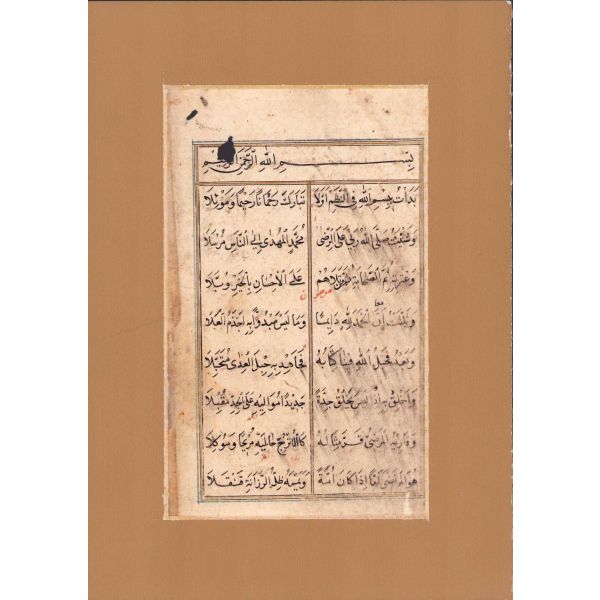 بِسْمِ اللهِ الرَّحْمَنِ الرَّحِيمِ
بَدَأْتُ بِبِسْمِ اللهِ فِي النَّظْمِ أَوَّلَا تَبَارَكَ رَحْمَانًا رَحِيمًا وَمَوْئِلَا
وَثَنَّيْتُ صَلَّى اللهُ رَبِّي عَلَى الرِّضَى مُحَمَّدٍ الْمُهْدَى إِلَى النَّاسِ مُرْسَلَا
وَعِتْرَتِهِ ثُمَّ الصَّحَابَةِ ثُمَّ مَنْ تَلَاهُمْ عَلَى الْإِحْسَانِ بِالْخَيْرِ وُبَّلَا
وَثَلَّثْتُ أَنَّ الْحَمْدَ لِلهِ دَائِمًا وَمَا لَيْسَ مَبْدُوًّا بِهِ أَجْذَمُ الْعَلَا
وَبَعْدُ فَحَبْلُ اللهِ فِينَا كِتَابُهُ فَجَاهِدْ بِهِ حِبْلَ الْعِدَى مُتَحَبِّلَا
وَأَخْلِقْ بِهِ إِذْ لَيْسَ يَخْلُقُ جِدَّةً جَدِيدًا مُوَالِيهِ عَلَى الْجِدِّ مُقْبِلَا
وَقَارِئُهُ الْمَرْضِيُّ قَرَّ مِثَالُهُ كَالْأُتْرُجِّ حَالَيْهِ مُرِيحًا وَمُوكَلَا
هُوَ الْمُرْتَضَى أَمًّا إِذَا كَانَ أُمَّةً وَيَمَّمَهُ ظِلُّ الرَّزَانَةِ قَنْقَلَا